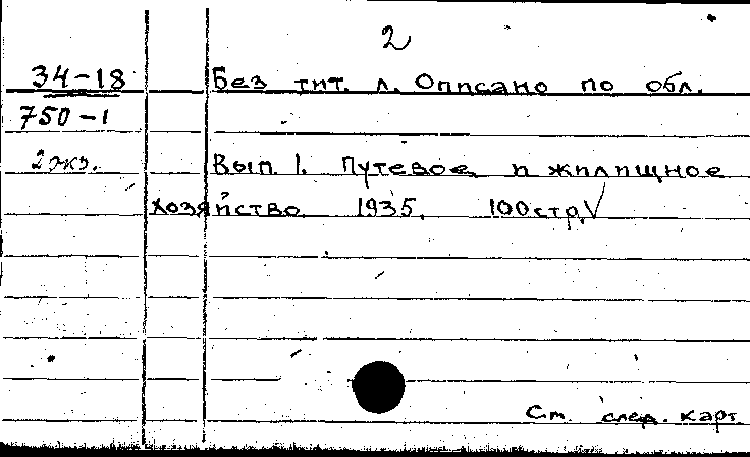 2
34-18 Без тит. л. Описано по обл.
750-1
2 экз. Вып. 1. Путевое и жилищное
хозяйство 1935. 100 стр. V
См. след. карт.